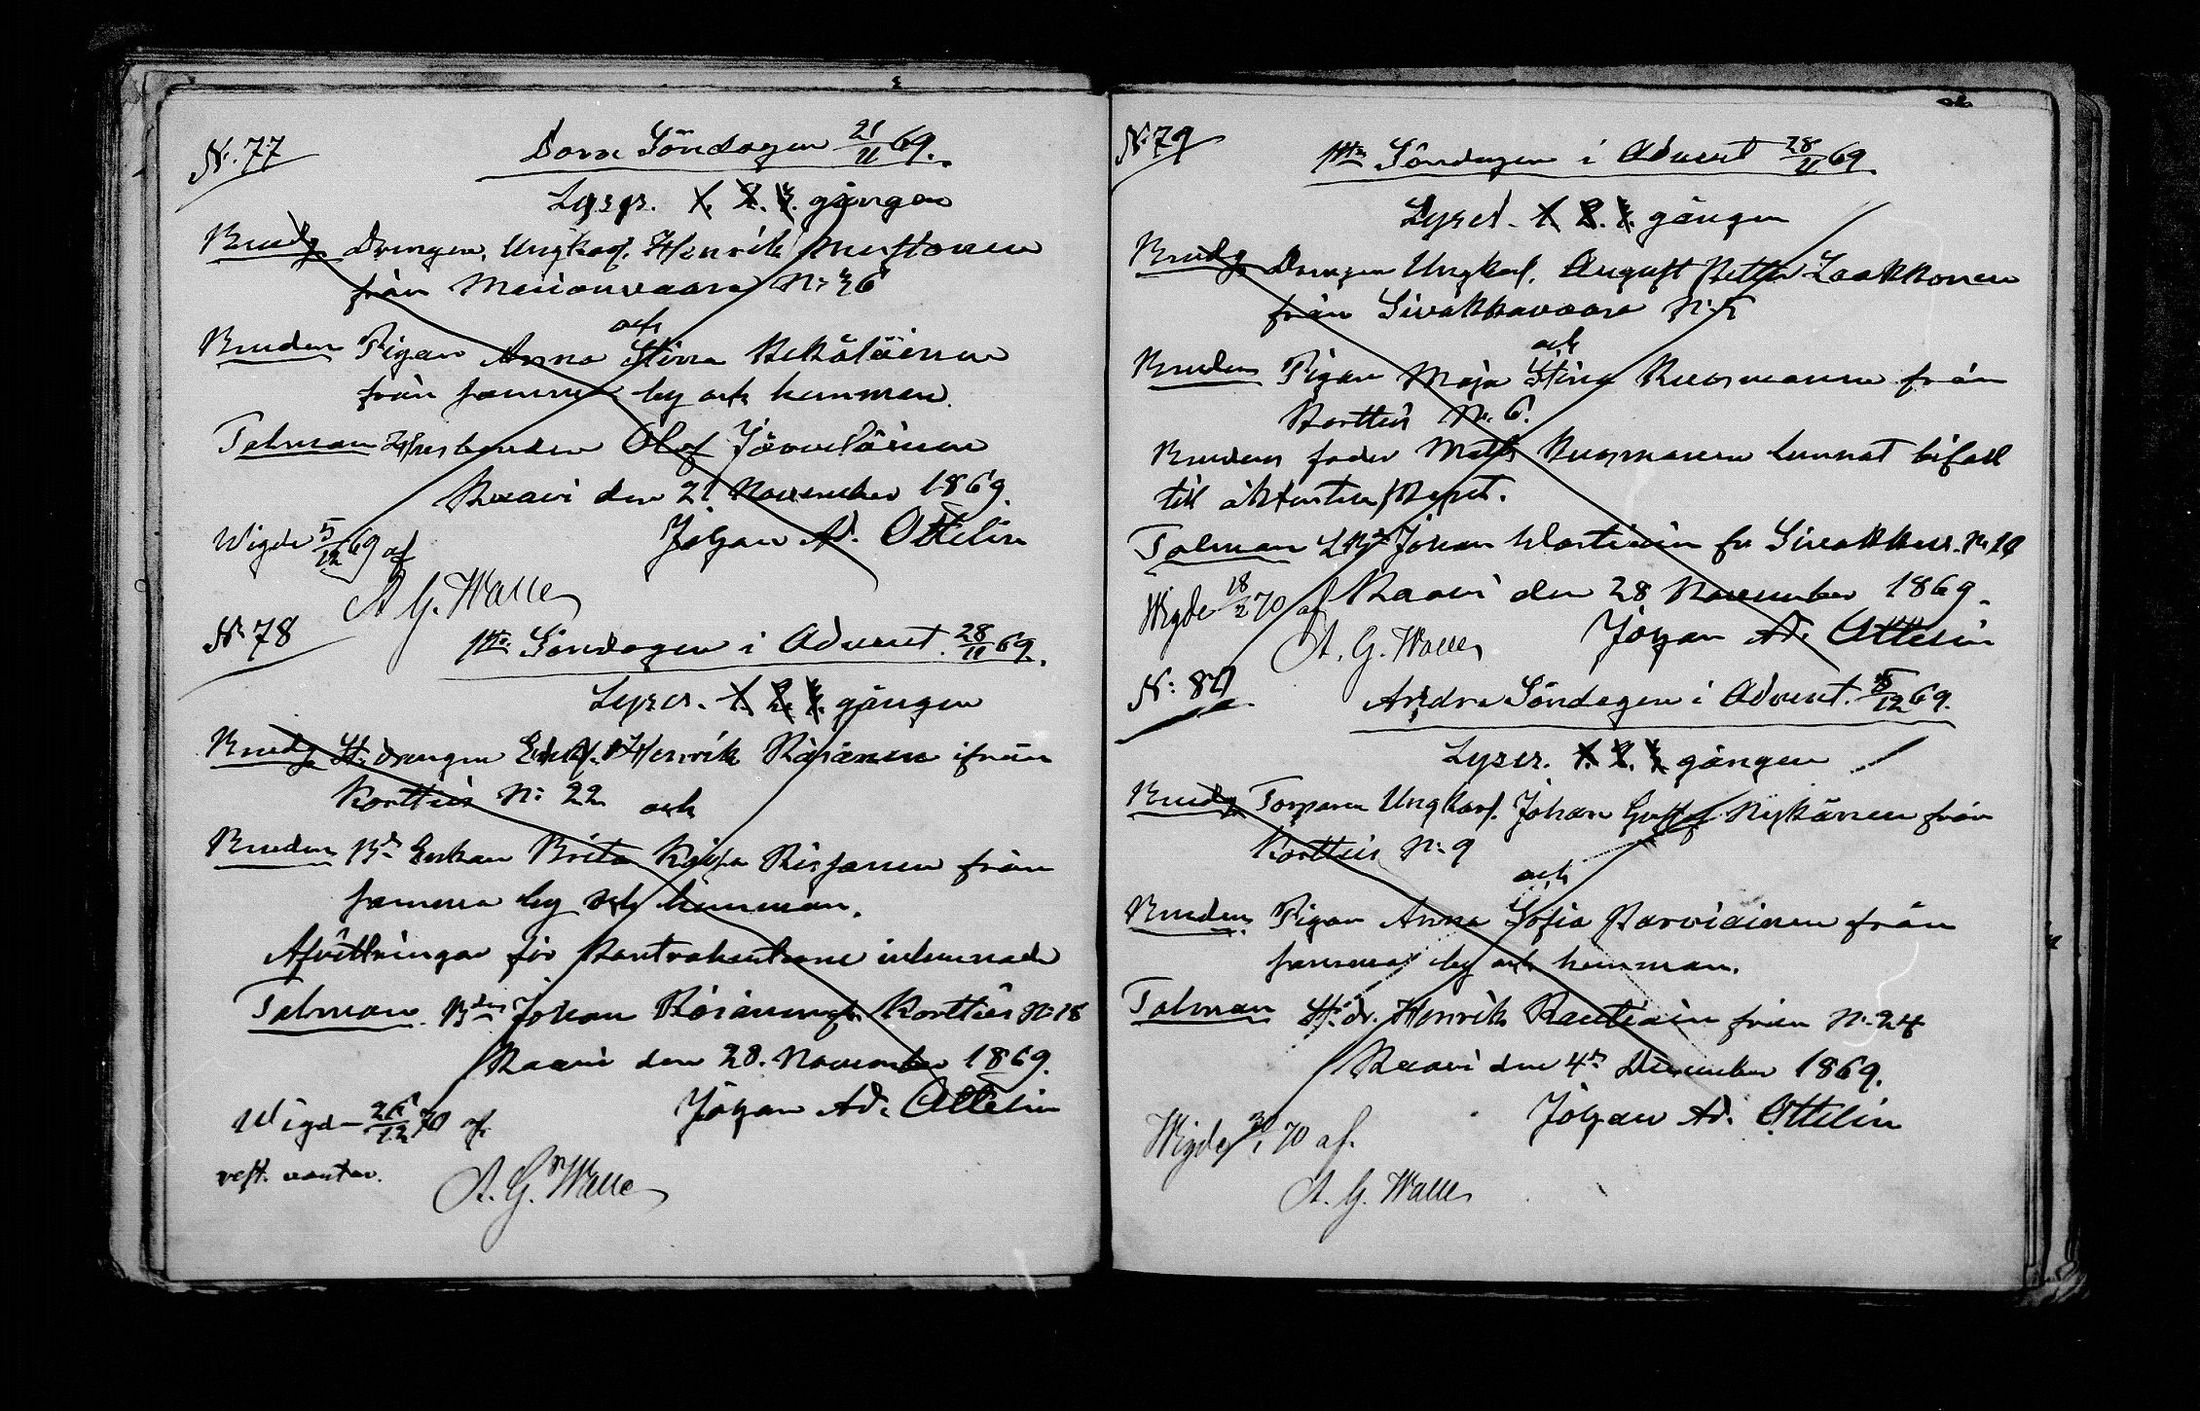 N:77
Doms Söndagen 21/11 69.
Lyses. 1. 2. 3. gången
Brudg. Drengen, Ungkarl. Henrik
från N:36
och
Bruden Pigan Anna Stina
från samma by och hemman.
Talman Husbonden Olof
den 21 November 1869.
Johan Ad. Ottelin
Wigde 5/12 69 af
A. G. Walle
N:78
1sta Söndagen i Advent. 28/11 69.
Lyses. 1. 2. 3. gången
Brudg. St. drengen Enkl. Henrik Räsänen ifrån
Kortteis N: 22 och
Bruden Enkan Brita Kajsa från
samma by och hemman.
Afvittringar för Kontrahenterne inlemnade
Talman. Johan Kortteis N:18
den 28. November 1869.
Johan Ad. Ottelin
Wigde 70 af
A. G. Walle
N:79
1sta Söndagen i Advent 28/11 69.
Lyses. 1. 2. 3. gången
Brudg. Drengen Ungkarl. August Petter Laakkonen
från Sivakkavaara N:5
och
Bruden Pigan Maja Stina Kuosmanen från
Kortteis N: 6.
Brudens fader Matts Kuosmanen lemnat bifall
till äktenskapet.
Talman Johan fr Sivakkav. N:10
Wigde 18/2 70 af
den 28 November 1869.
Johan Ad. Ottelin
A. G. Walle
N: 80
Andra Söndagen i Advent. 5/12 69.
Lyses. 1. 2. 3. gången
Brudg. Torparen Ungkarl. Johan Gustaf Nykänen från
Kortteis N:9
och
Bruden Pigan Anna Sofia Parviainen från
samma by och hemman.
Talman St. dr. Henrik från N:24
den 4de December 1869.
Johan Ad. Ottelin
Wigde 70 af.
A. G. Walle